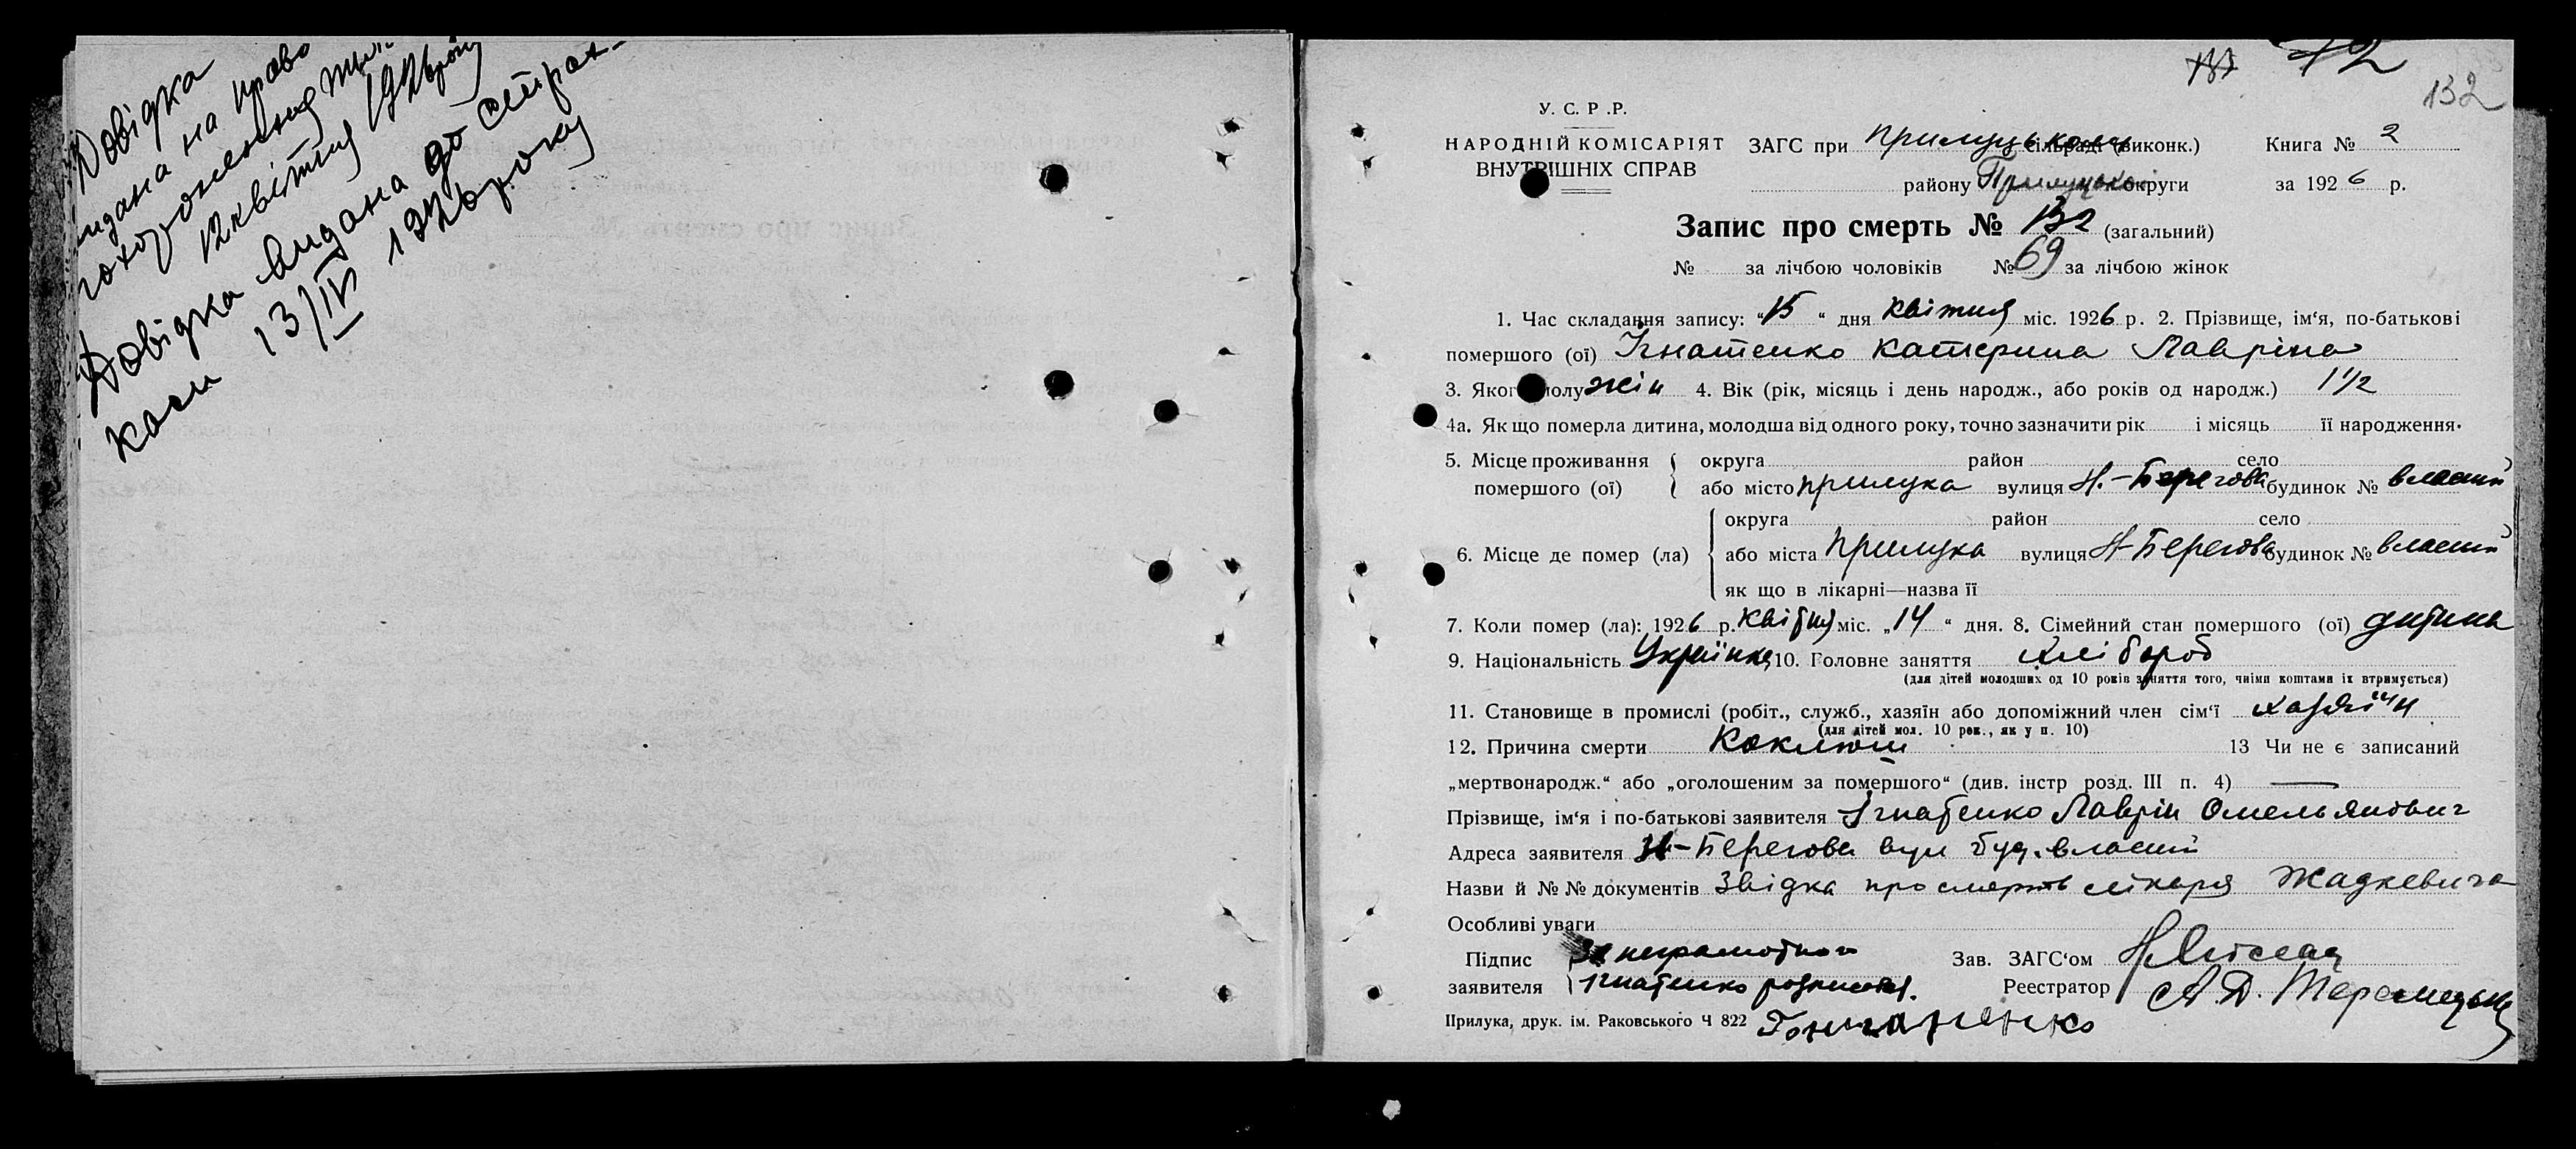 Довідка
видана на право
похоронення
12 квітня 1926 року
Довідка видана до страх-
каси 13/IV 1926 року
132
У. С. Р .Р.
НАРОДНІЙ КОМІСАРІЯТ
ВНУТРІШНІХ СПРАВ
ЗАГС при Прилуцькому сільраді (виконк.) Книга № 2
району Прилуцької округи за 1926 р.
Запис про смерть № 132 (загальний)
№ за лічбою чоловіків № 69 за лічбою жінок
1. Час складання запису: “15“ дня квітня міс. 1926 р. 2. Прізвище, ім‘я, по-батькові
помершого (ої) Ігнатенко Катерина Лавріна
3. Якого полу жін 4. Вік (рік, місяць і день народж., або років од народж.) 1 1/2
4а. Як що померла дитина, молодша від одного року, точно зазначити рік і місяць її народження.
5. Місце проживання помершого (ої) округа район село
або місто Прилука вулиця Н.-Берегова будинок № власний
6. Місце де помер (ла) округа район село
або міста Прилука вулиця Н-Берегова будинок № власний
як що в лікарні—назва її
7. Коли помер (ла): 1926 р. квітня міс. „14“ дня. 8. Сімейний стан помершого (ої) дитина
9. Національність Українка 10. Головне заняття хлібороб
(для дітей молодших од 10 років заняття того, чиїми коштами їх втримується)
11. Становище в промислі (робіт., служб., хазяїн або допоміжний член сім‘ї хазяїн
(для дітей мол. 10 рок., як у п. 10)
12. Причина смерти Коклюш 13 Чи не є записаний
„мертвонародж.“ або „оголошеним за помершого“ (див. інстр розд. III п. 4) —
Прізвище, ім‘я і по-батькові заявителя Ігнатенко Лаврін Омельянович
Адреса заявителя Н-Берегова вул буд. власний
Назви й №№ документів Звідка про смерть лікаря Жадкевича
Особливі уваги
Підпис заявителя За неграмотного
Ігнатенко розписався.
Гончаренко
Зав. ЗАГС‘ом
Реестратор
Прилука, друк. ім. Раковського Ч 822